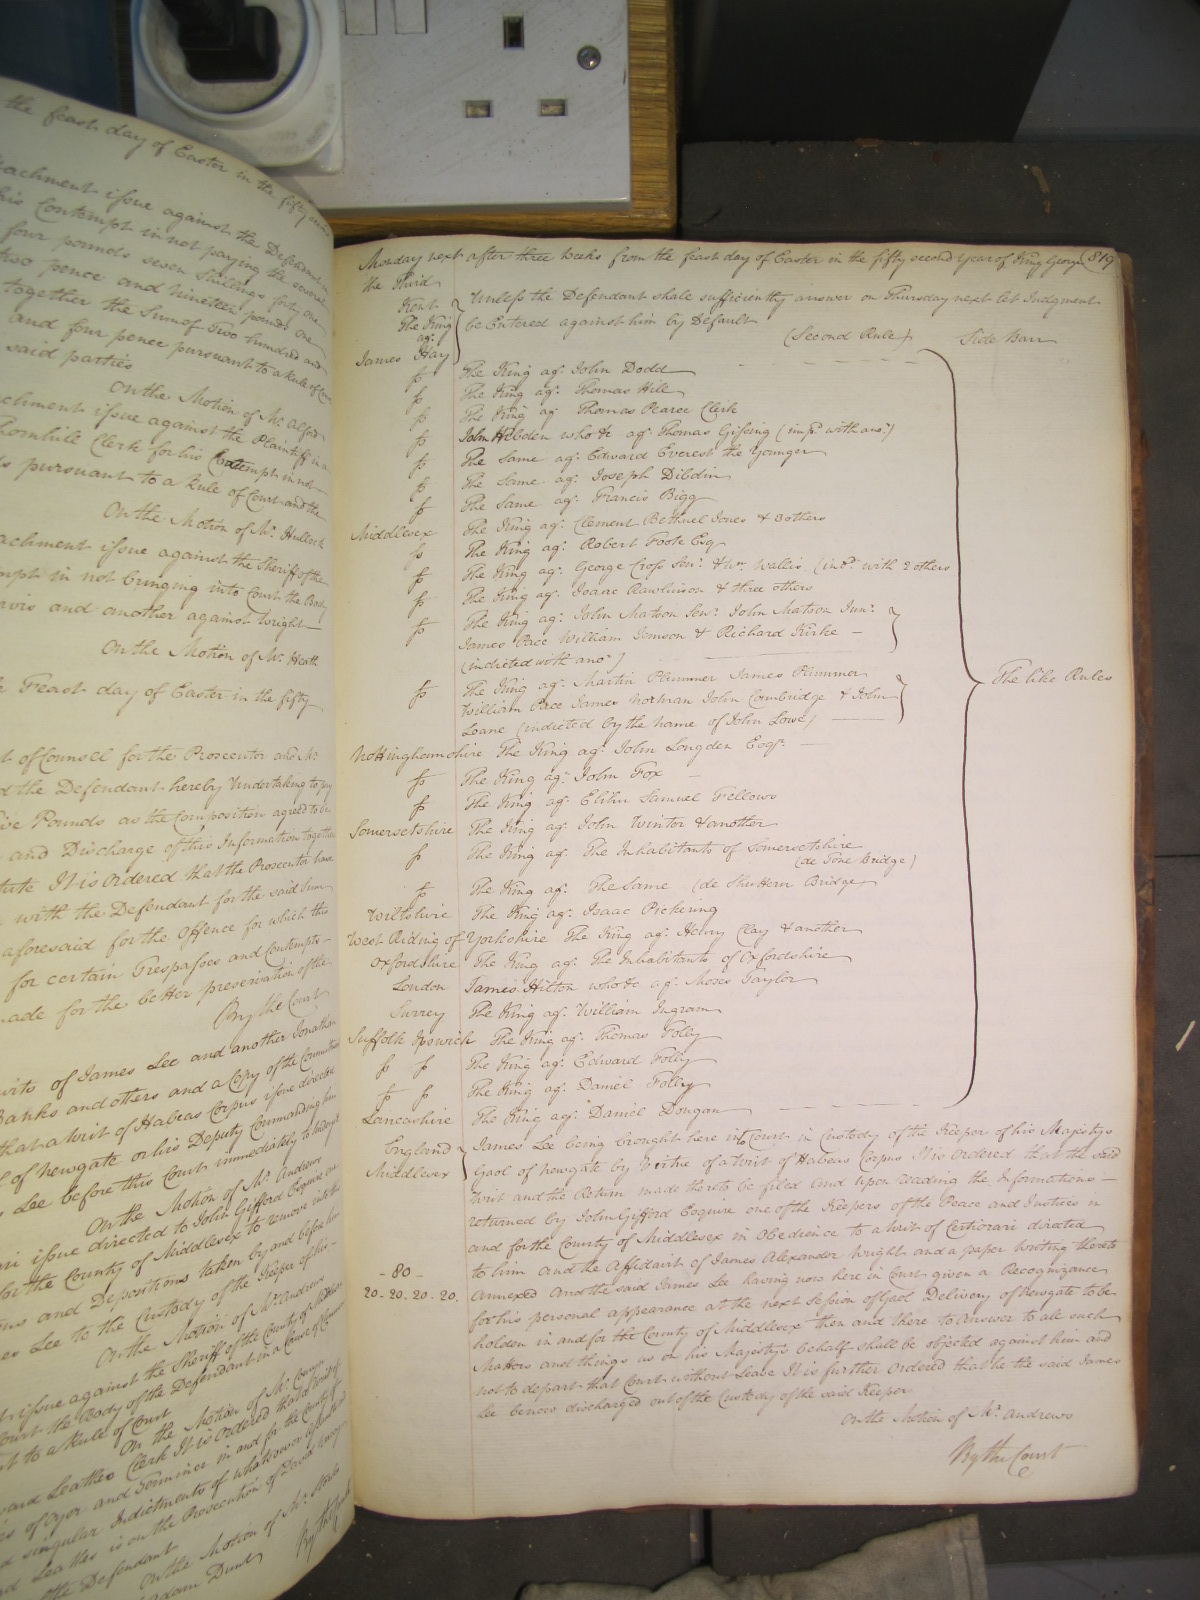 the feast day of Easter in the fifty
tachment issue against the Defendant
his Contempt in not paying the several
four pounds seven shillings forty one
two pence and nineteen pounds one
together the sum of Two hundred and
and four pence pursuant to a Rule of
said parties
On the Motion of Mr.
chment issue against the Plaintiff in a
Clerk for his Contempt in not
pursuant to a Rule of Court and the
On the Motion of Mr. Hullock
achment issue against the Sheriff of the
in not bringing into Court the Body
and another against Wright
On the Motion of Mr. Heath
Feast day of Easter in the fifty
of Counsel for the Prosecutor and Mr.
the Defendant hereby Undertaking to pay
Pounds as the Composition agreed to be
and Discharge of this Information together
It is Ordered that the Prosecutor have
with the Defendant for the said Sum
aforesaid for the Offence for which this
for certain Trespasses and Contempts
made for the better preservation of the
By the Court
of James Lee and another Jonathan
Banks and others and a Copy of the Commitment
that a Writ of Habeas Corpus issue directed
of Newgate or his Deputy Commanding him
Lee before this Court immediately to
On the Motion of Mr. Andrews
issue directed to John Gifford Esquire
for the County of Middlesex to remove into
and Depositions taken by and before him
Lee to the Custody of the Keeper of his
On the Motion of Mr. Andrews
issue against the Sheriff of the County of
Court the Body of the Defendant in a Cause of
to a Rule of Court
On the Motion of Mr.
Clerk It is Ordered that
of Oyer and Terminer in and for the County of
singular Indictments of whatsoever
is on the Prosecution of David
the Defendant
On the Motion of Mr.
By the Court
Monday next after three Weeks from the feast day of Easter in the fifty second Year of King George 819
the Third
Kent Unless the Defendant shall sufficiently answer on Thursday next let Judgment
The King be Entered against him by Default
agt. (Second Rule) Side Barr
James Hay
The King agt. John Dodd
The King agt. Thomas Hill
The King agt. Thomas Pearce Clerk
John Hebden who &c agt. Thomas Gissing (impd. with anor.)
The Same agt. Edward Everest the Younger
The Same agt. Joseph Dibdin
The Same agt. Francis Bigg
Middlesex The King agt. Clement Bethuel Jones & 3 others
The King agt. Robert Foote Esq
The King agt. George Cross Senr. & Wm. Wallis (indd. with 2 others
The King agt. Isaac Rawlinson & three others
The King agt. John Matson Senr. John Matson Junr.
James Pace William Jemson & Richard Kirke
(indicted with anor)
The King agt. Martin Plummer James Plummer
William Pace James Norman John Combridge & John
Loane (indicted by the name of John Lowe)
The like Rules
Nottinghamshire The King agt. John Longden Esqr.
The King agt. John Fox
The King agt. Elihu Samuel Fellows
Somersetshire The King agt. John Winter & another
The King agt. The Inhabitants of Somersetshire
(de Tone Bridge)
The King agt. The Same (de Shuttern Bridge
Wiltshire The King agt. Isaac Pickering
West Riding of Yorkshire The King agt. Henry Clay & another
Oxfordshire The King agt. The Inhabitants of Oxfordshire
London James Hilton who &c agt. Moses Taylor
Surrey The King agt. William Ingram
Suffolk Ipswich The King agt. Thomas Folly
The King agt. Edward Folly
The King agt. Daniel Folly
Lancashire The King agt. Daniel Dongan
England James Lee being brought here into Court in Custody of the Keeper of his Majestys
Middlesex Gaol of Newgate by Virtue of a Writ of Habeas Corpus It is Ordered that the said
Writ and the Return made thereto be filed And upon reading the Informations
returned by John Gifford Esquire one of the Keepers of the Peace and Justices in
and for the County of Middlesex in Obedience to a Writ of Certiorari directed
to him and the Affidavit of James Alexander Wright and a paper Writing thereto
- 80 -
20. 20. 20. 20. Annexed And the said James Lee having now here in Court given a Recognizance
for his personal appearance at the next Session of Gaol Delivery of Newgate to be
holden in and for the County of Middlesex then and there to Answer to all such
Matters and things as on his Majestys behalf shall be objected against him and
not to depart that Court without Leave It is further Ordered that he the said James
Lee be now discharged out of the Custody of the said Keeper
On the Motion of Mr. Andrews
By the Court